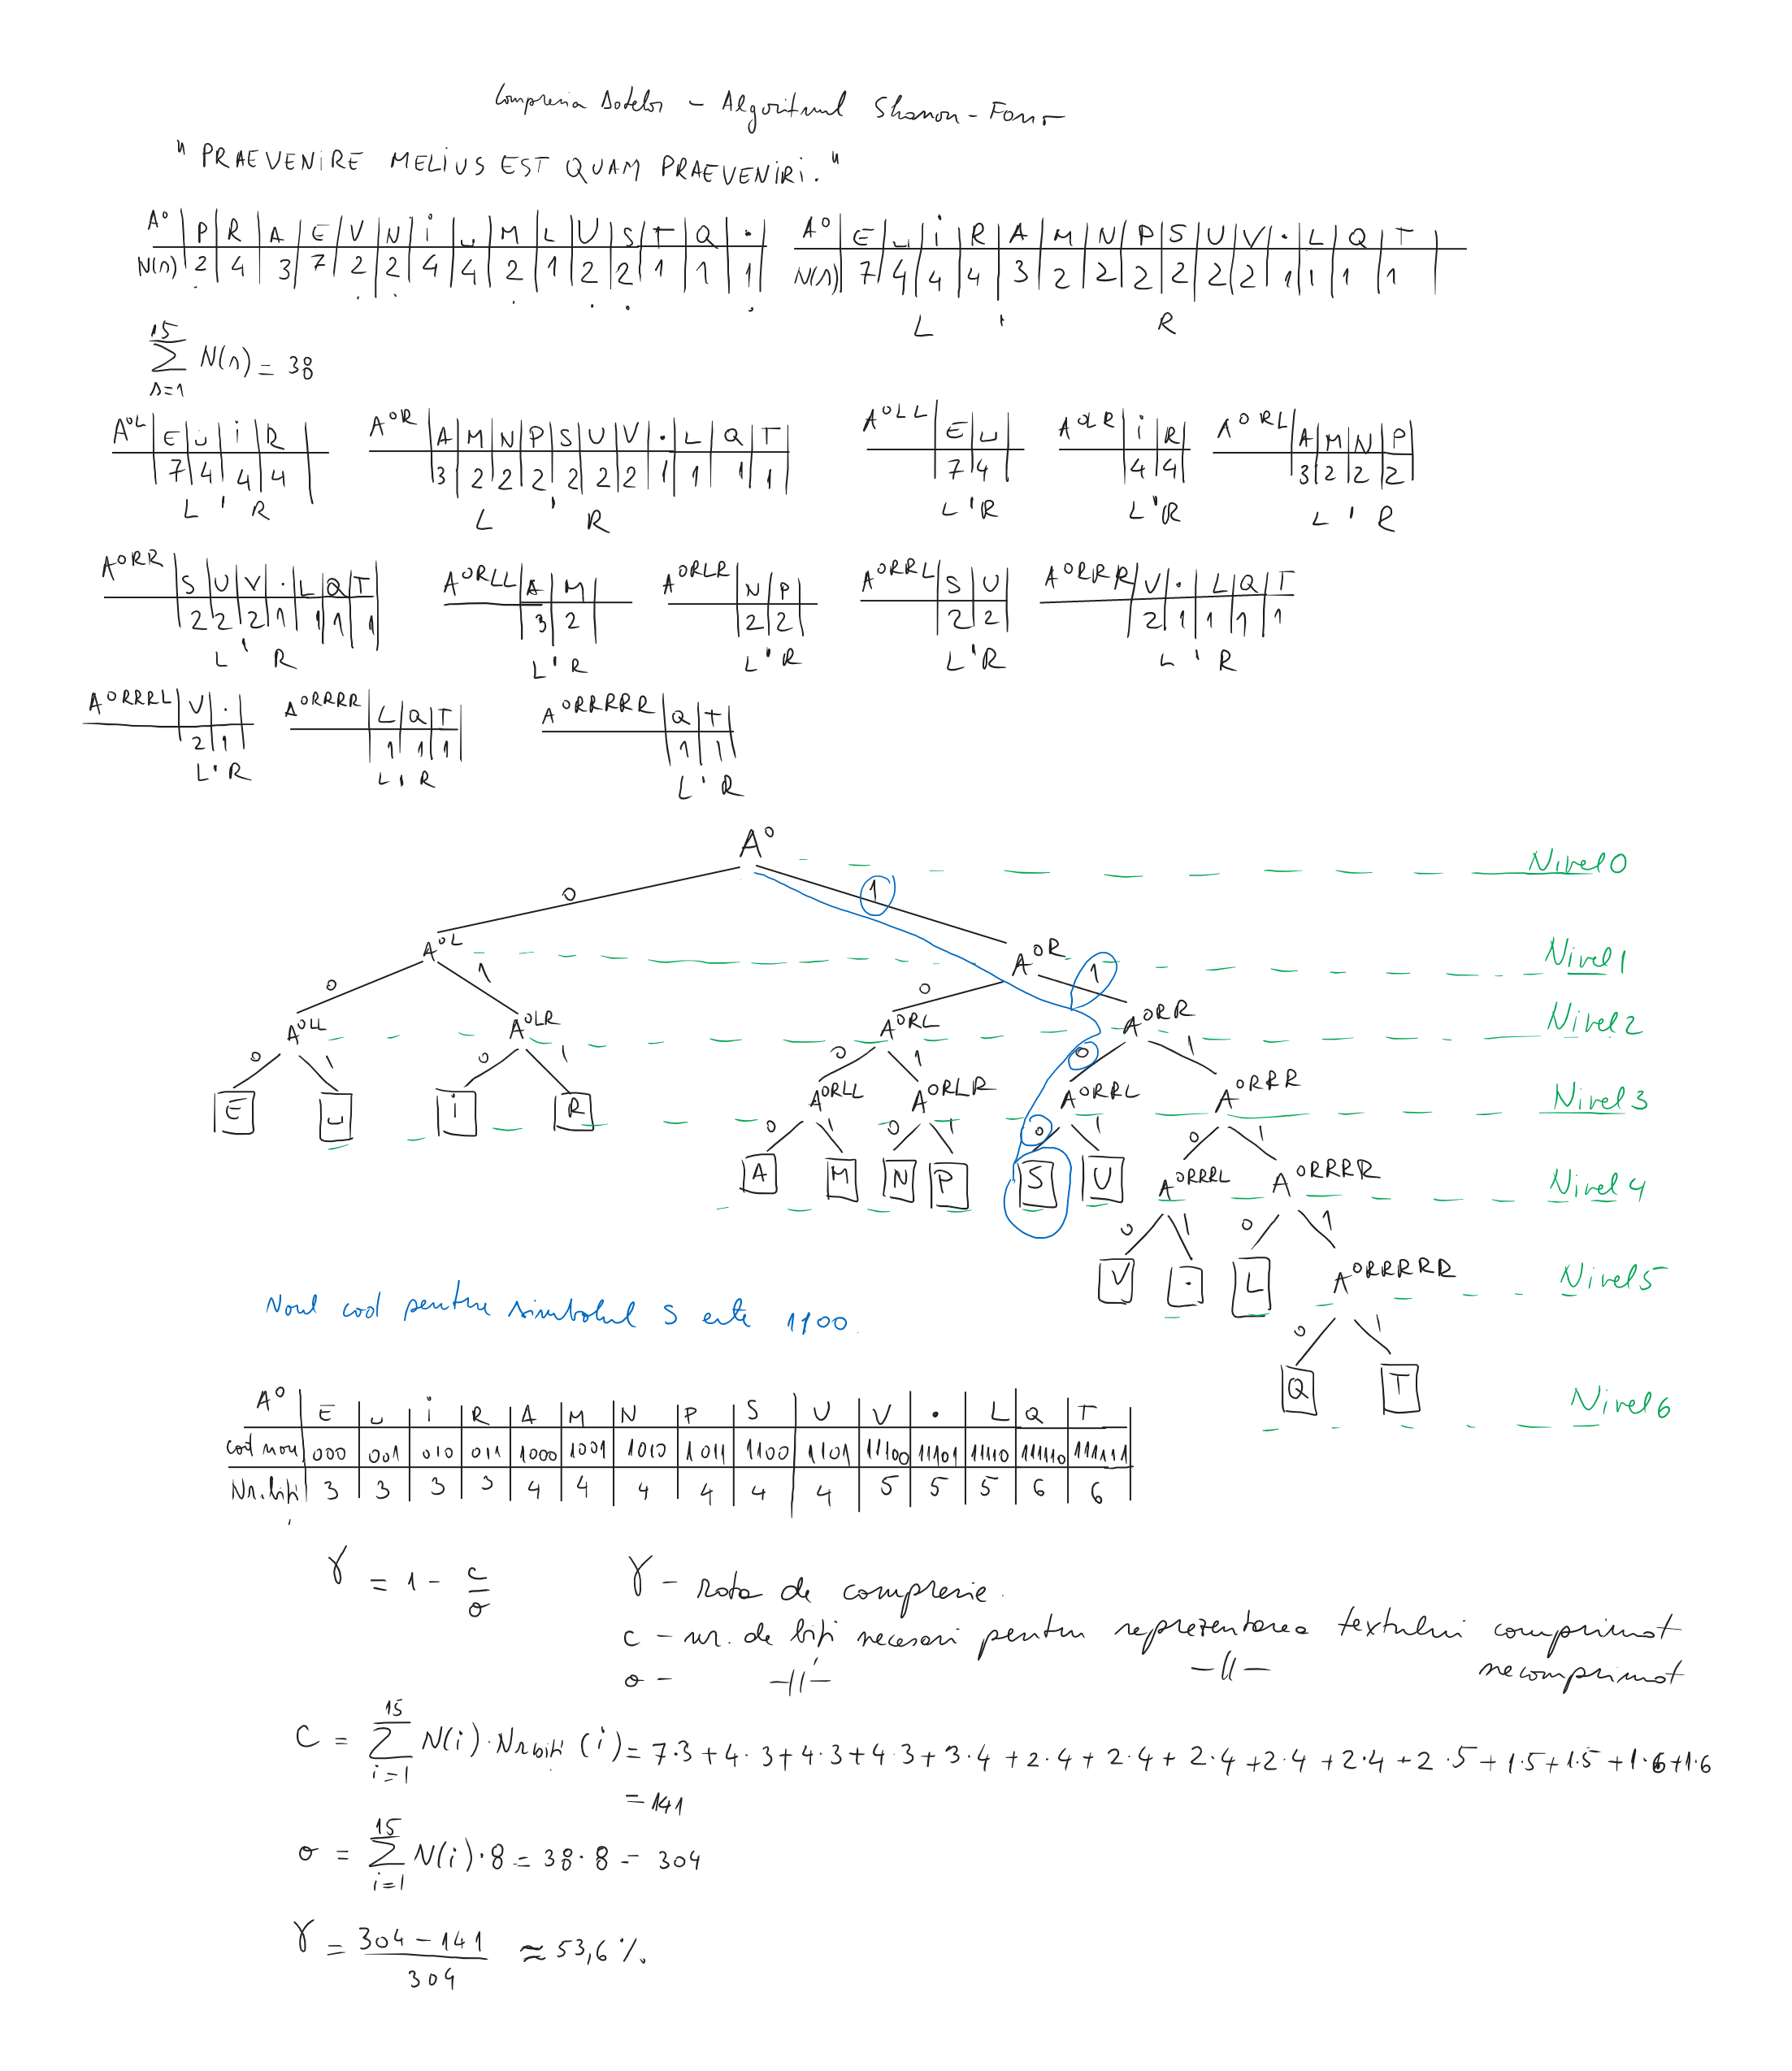 Compresia Datelor - Algoritmul Shanon-Fano
" PRAEVENIRE MELIUS EST QUAM PRAEVENIRI. "
A⁰ | P | R | A | E | V | N | i | ␣ | M | L | U | S | T | Q | .
N(s) | 2 | 4 | 3 | 7 | 2 | 2 | 4 | 4 | 2 | 1 | 2 | 2 | 1 | 1 | 1
A⁰ | E | ␣ | i | R | A | M | N | P | S | U | V | . | L | Q | T
N(s) | 7 | 4 | 4 | 4 | 3 | 2 | 2 | 2 | 2 | 2 | 2 | 1 | 1 | 1 | 1
L ' R
15
∑ N(s) = 38
s=1
A⁰ᴸ | E | ␣ | i | R
7 | 4 | 4 | 4
L ' R
A⁰ᴿ | A | M | N | P | S | U | V | . | L | Q | T
3 | 2 | 2 | 2 | 2 | 2 | 2 | 1 | 1 | 1 | 1
L ' R
A⁰ᴸᴸ | E | ␣
7 | 4
L ' R
A⁰ᴸᴿ | i | R
4 | 4
L ' R
A⁰ᴿᴸ | A | M | N | P
3 | 2 | 2 | 2
L ' R
A⁰ᴿᴿ | S | U | V | . | L | Q | T
2 | 2 | 2 | 1 | 1 | 1 | 1
L ' R
A⁰ᴿᴸᴸ | A | M
3 | 2
L ' R
A⁰ᴿᴸᴿ | N | P
2 | 2
L ' R
A⁰ᴿᴿᴸ | S | U
2 | 2
L ' R
A⁰ᴿᴿᴿ | V | . | L | Q | T
2 | 1 | 1 | 1 | 1
L ' R
A⁰ᴿᴿᴿᴸ | V | .
2 | 1
L ' R
A⁰ᴿᴿᴿᴿ | L | Q | T
1 | 1 | 1
L ' R
A⁰ᴿᴿᴿᴿᴿ | Q | T
1 | 1
L ' R
A⁰ Nivel 0
0 1
A⁰ᴸ A⁰ᴿ Nivel 1
0 1 0 1
A⁰ᴸᴸ A⁰ᴸᴿ A⁰ᴿᴸ A⁰ᴿᴿ Nivel 2
0 1 0 1 0 1 0 1
E ␣ i R A⁰ᴿᴸᴸ A⁰ᴿᴸᴿ A⁰ᴿᴿᴸ A⁰ᴿᴿᴿ Nivel 3
0 1 0 1 0 1 0 1
A M N P S U A⁰ᴿᴿᴿᴸ A⁰ᴿᴿᴿᴿ Nivel 4
0 1 0 1
V . L A⁰ᴿᴿᴿᴿᴿ Nivel 5
0 1
Q T Nivel 6
Noul cod pentru simbolul S este 1100.
A⁰ | E | ␣ | i | R | A | M | N | P | S | U | V | . | L | Q | T
cod nou | 000 | 001 | 010 | 011 | 1000 | 1001 | 1010 | 1011 | 1100 | 1101 | 11100 | 11101 | 11110 | 111110 | 111111
Nr. biți | 3 | 3 | 3 | 3 | 4 | 4 | 4 | 4 | 4 | 4 | 5 | 5 | 5 | 6 | 6
γ = 1 - c/o
γ - rata de compresie.
c - nr. de biți necesari pentru reprezentarea textului comprimat
o - -//- -//- necomprimat
15
C = ∑ N(i) · Nr biți (i) = 7·3 + 4·3 + 4·3 + 4·3 + 3·4 + 2·4 + 2·4 + 2·4 + 2·4 + 2·4 + 2·5 + 1·5 + 1·5 + 1·6 + 1·6
i=1
= 141
15
o = ∑ N(i) · 8 = 38 · 8 = 304
i=1
γ = (304 - 141)/304 ≈ 53,6 %.